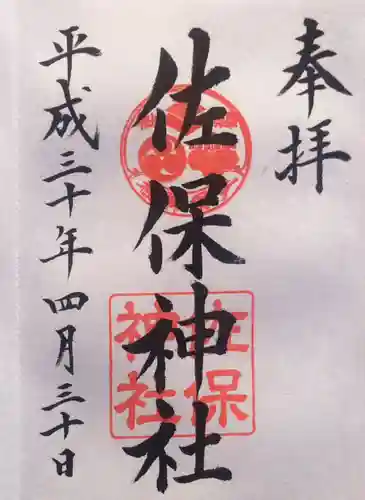 奉拝
佐保神社
佐保
神社
平成三十年四月三十日